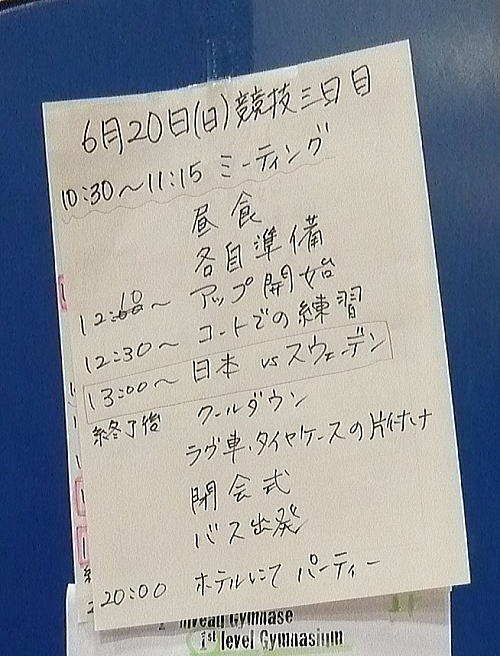 6月20日(日)競技三日目
10:30～11:15 ミーティング
昼食
各自準備
12:10～ アップ開始
12:30～ コートでの練習
13:00～ 日本 vs スウェーデン
終了後 クールダウン
ラグ車、タイヤケースの片付け
閉会式
バス出発
20:00 ホテルにて パーティー
niveau Gymnase
1st level Gymnasium